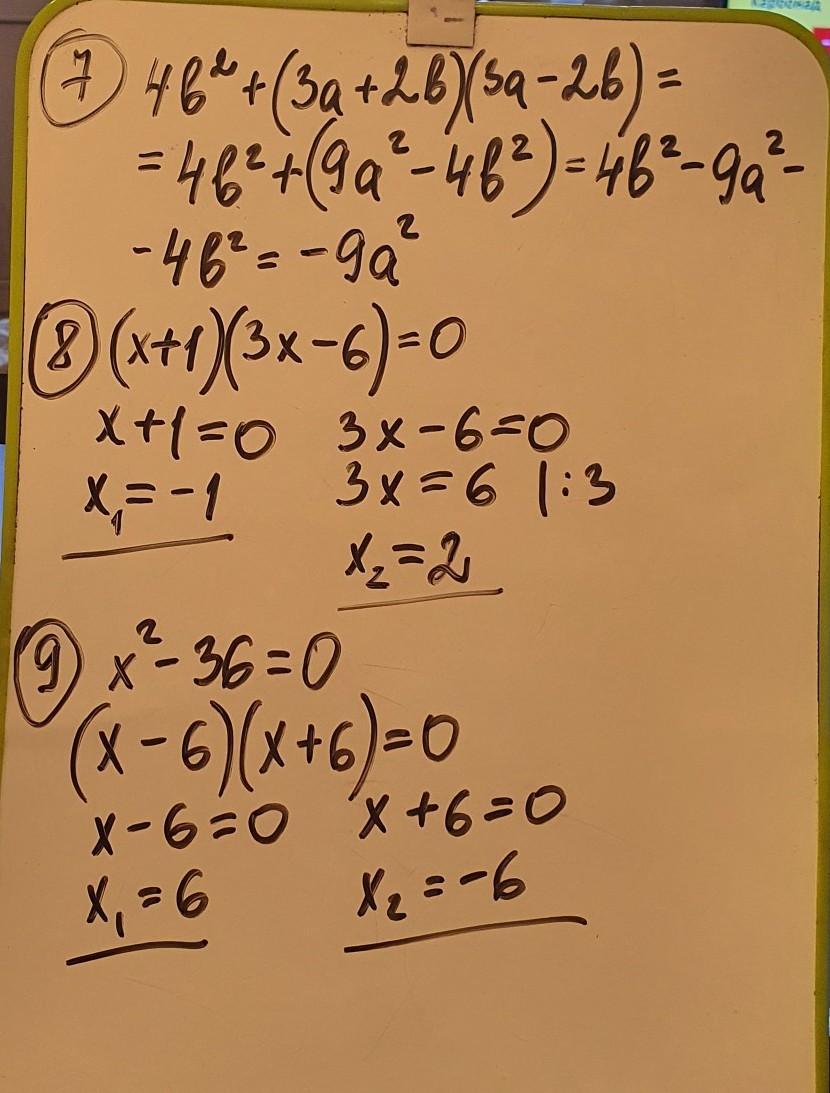 ⑦ 4b² + (3a + 2b)(3a - 2b) =
= 4b² + (9a² - 4b²) = 4b² - 9a² -
- 4b² = - 9a²
⑧ (x+1)(3x - 6) = 0
x + 1 = 0 3x - 6 = 0
x₁ = -1 3x = 6 | : 3
x₂ = 2
⑨ x² - 36 = 0
(x - 6)(x + 6) = 0
x - 6 = 0 x + 6 = 0
x₁ = 6 x₂ = -6